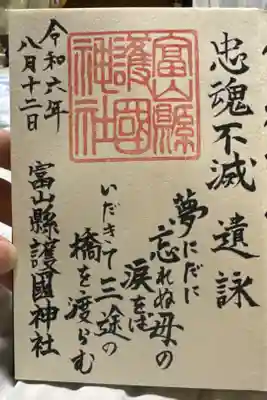 忠魂不滅 遺詠
夢にだに
忘れぬ母の
涙をば
いだきて三途の
橋を渡らむ
富山縣護國神社
富山縣
護國
神社
令和六年
八月十二日